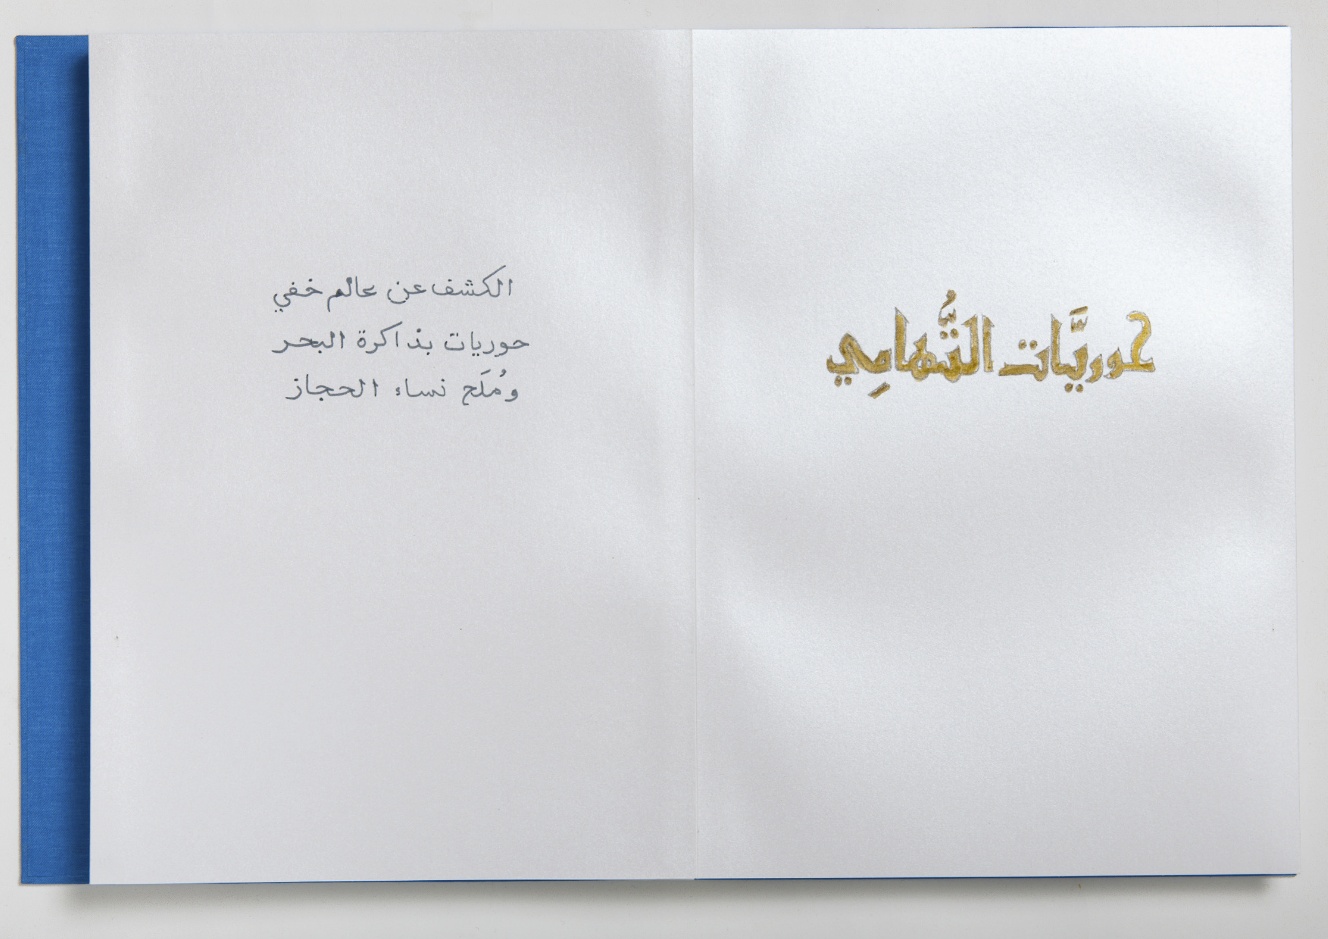 حوريَّات التُّهامِي
الكشف عن عالم خفي
حوريات بذاكرة البحر
ومُلَح نساء الحجاز